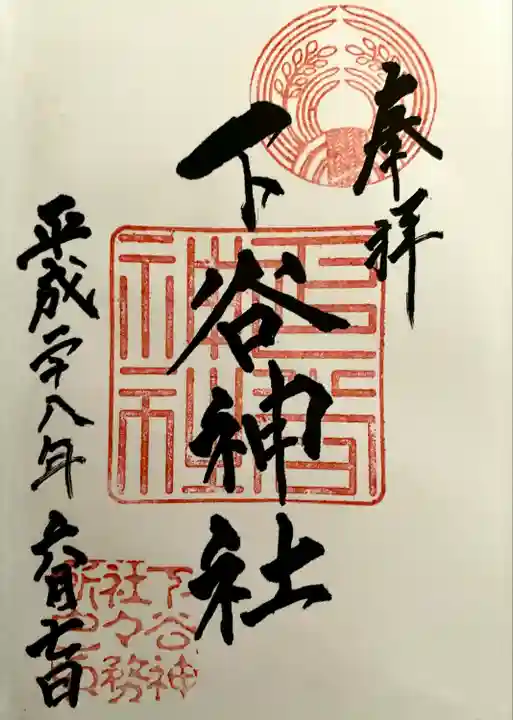 奉拝
下谷神社
平成二十八年六月七日
下谷神
社々務
所之印